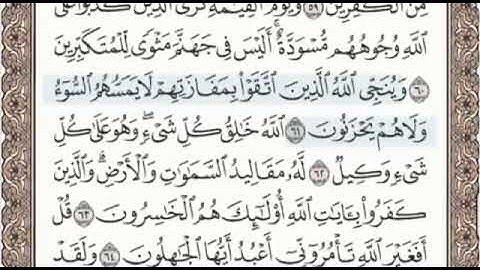 مِنَ ٱلْكَٰفِرِينَ ٥٩ وَيَوْمَ ٱلْقِيَٰمَةِ تَرَى ٱلَّذِينَ كَذَبُوا۟ عَلَى
ٱللَّهِ وُجُوهُهُم مُّسْوَدَّةٌ ۚ أَلَيْسَ فِى جَهَنَّمَ مَثْوًى لِّلْمُتَكَبِّرِينَ
٦٠ وَيُنَجِّى ٱللَّهُ ٱلَّذِينَ ٱتَّقَوْا۟ بِمَفَازَتِهِمْ لَا يَمَسُّهُمُ ٱلسُّوٓءُ
وَلَا هُمْ يَحْزَنُونَ ٦١ ٱللَّهُ خَٰلِقُ كُلِّ شَىْءٍ ۖ وَهُوَ عَلَىٰ كُلِّ
شَىْءٍ وَكِيلٌ ٦٢ لَّهُۥ مَقَالِيدُ ٱلسَّمَٰوَٰتِ وَٱلْأَرْضِ ۗ وَٱلَّذِينَ
كَفَرُوا۟ بِـَٔايَٰتِ ٱللَّهِ أُو۟لَٰٓئِكَ هُمُ ٱلْخَٰسِرُونَ ٦٣ قُلْ
أَفَغَيْرَ ٱللَّهِ تَأْمُرُوٓنِّىٓ أَعْبُدُ أَيُّهَا ٱلْجَٰهِلُونَ ٦٤ وَلَقَدْ